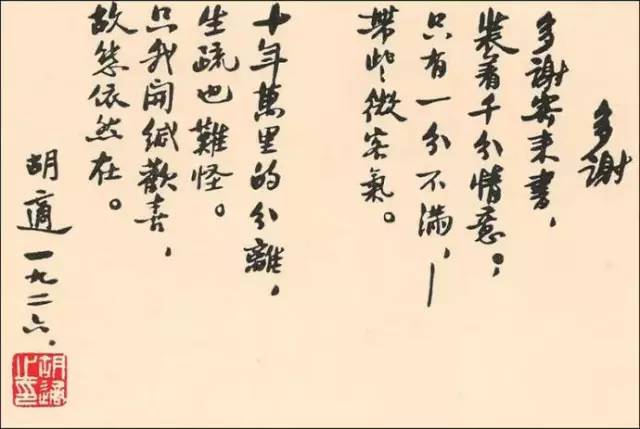 多謝
多謝寄来書,
裝着千分情意;
只有一分不滿,—
帶些微客氣。
十年萬里的分離,
生疏也難怪。
只我開緘歡喜,
故態依然在。
胡適 一九二六.
胡適之印